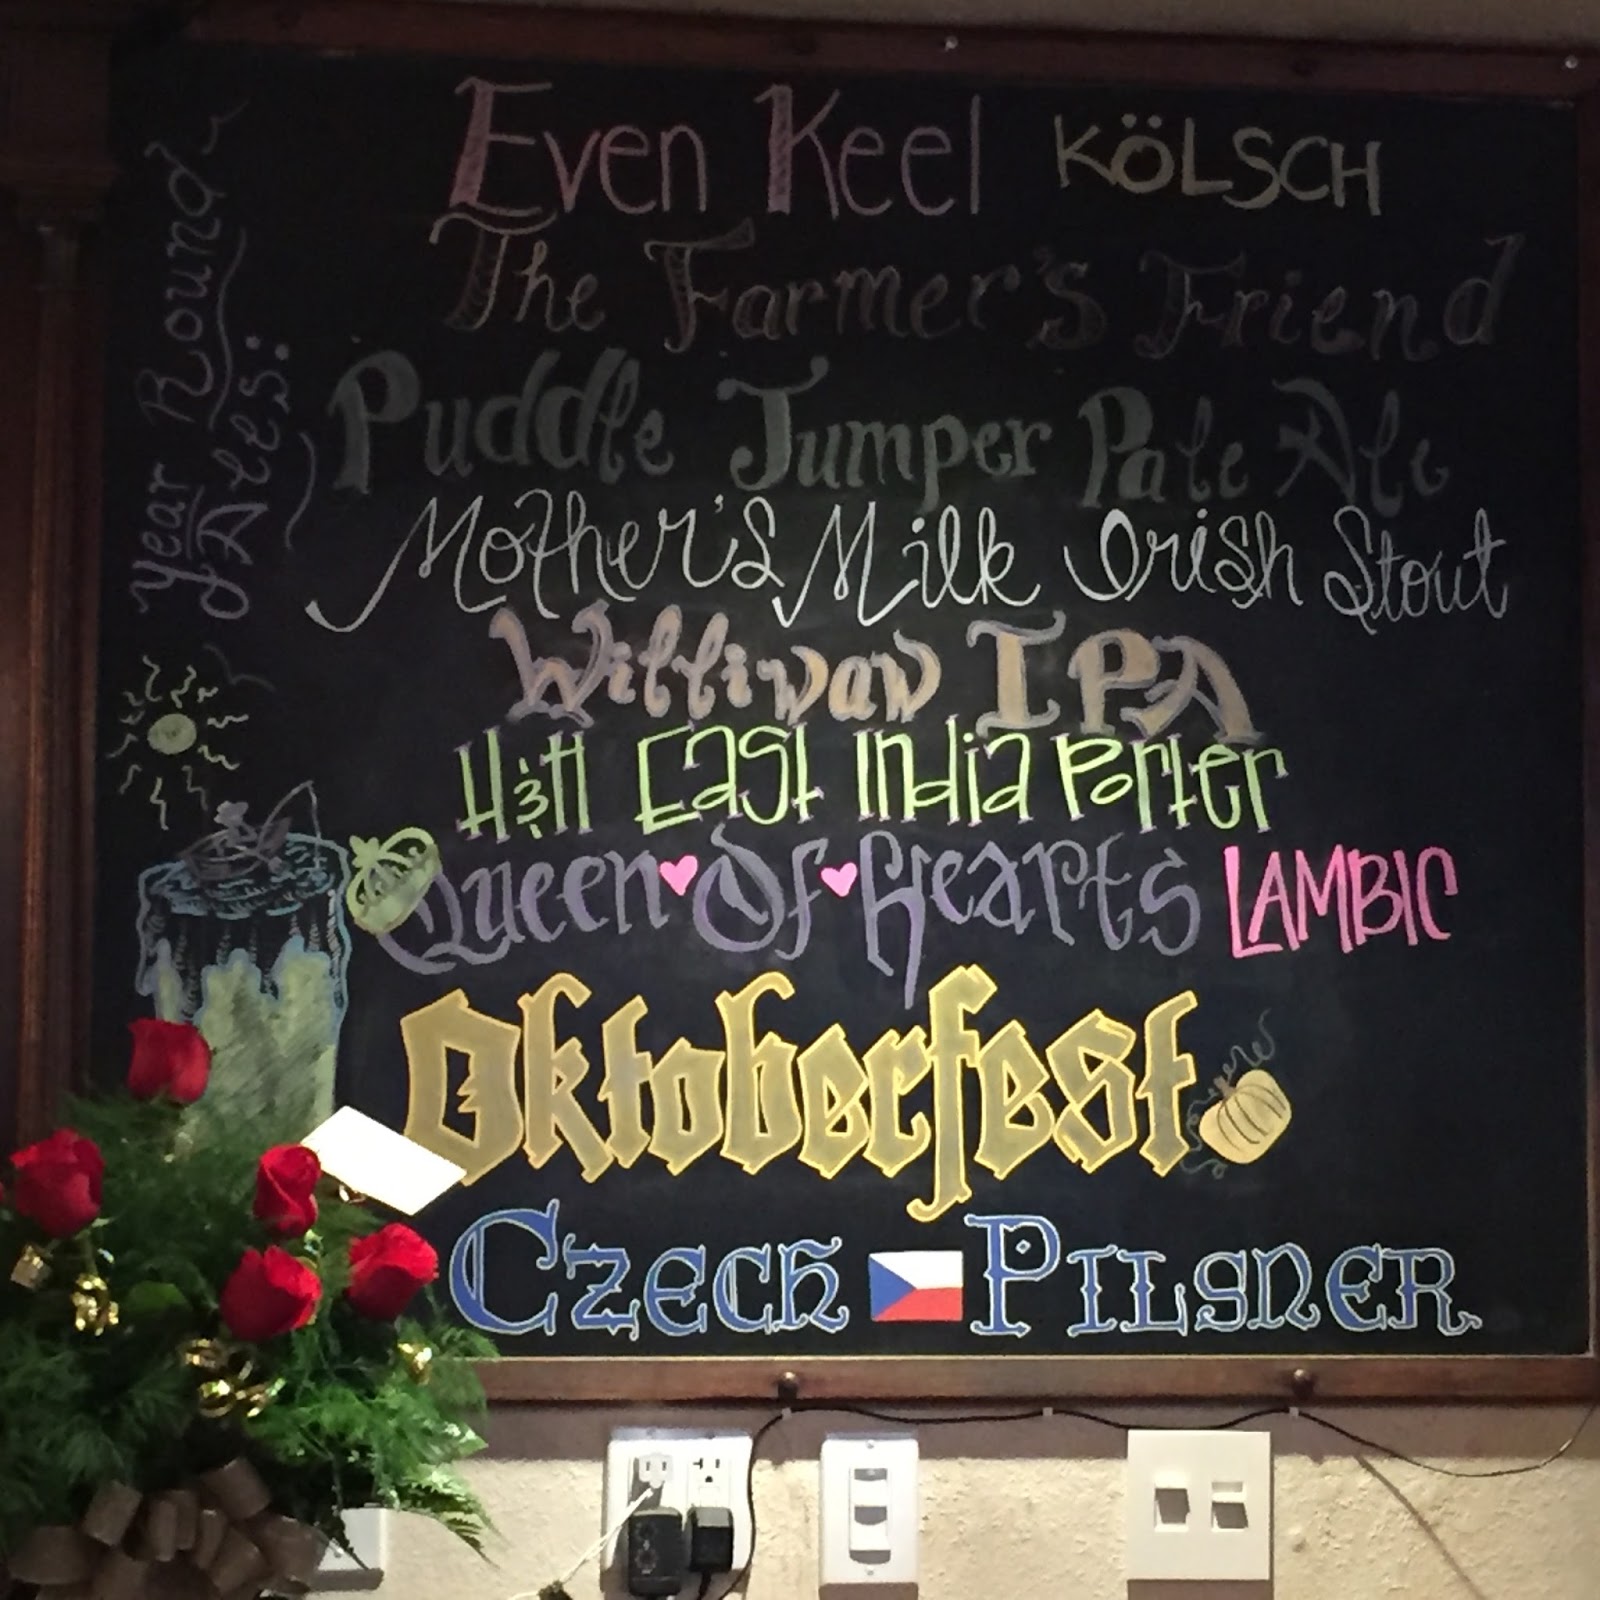 Year Round
Ales:
Even Keel KÖLSCH
The Farmer's Friend
Puddle Jumper Pale Ale
Mother's Milk Irish Stout
Williwaw IPA
H&H East India Porter
Queen Of Hearts LAMBIC
Oktoberfest
CZECH PILSNER